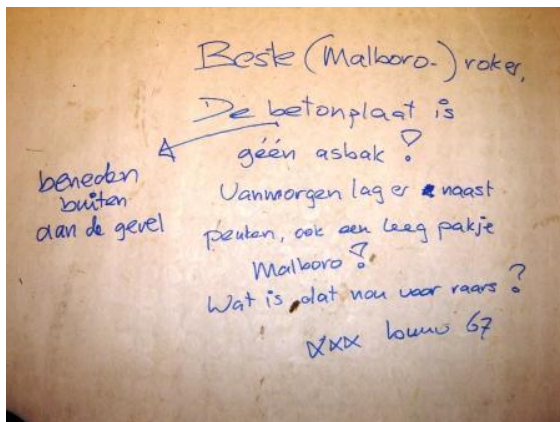 Beste (Malboro-) roker,
De betonplaat is
géén asbak!
beneden
buiten
aan de gevel
Vanmorgen lag er naast
peuken, ook een leeg pakje
Malboro!
Wat is dat nou voor raars?
xxx 67